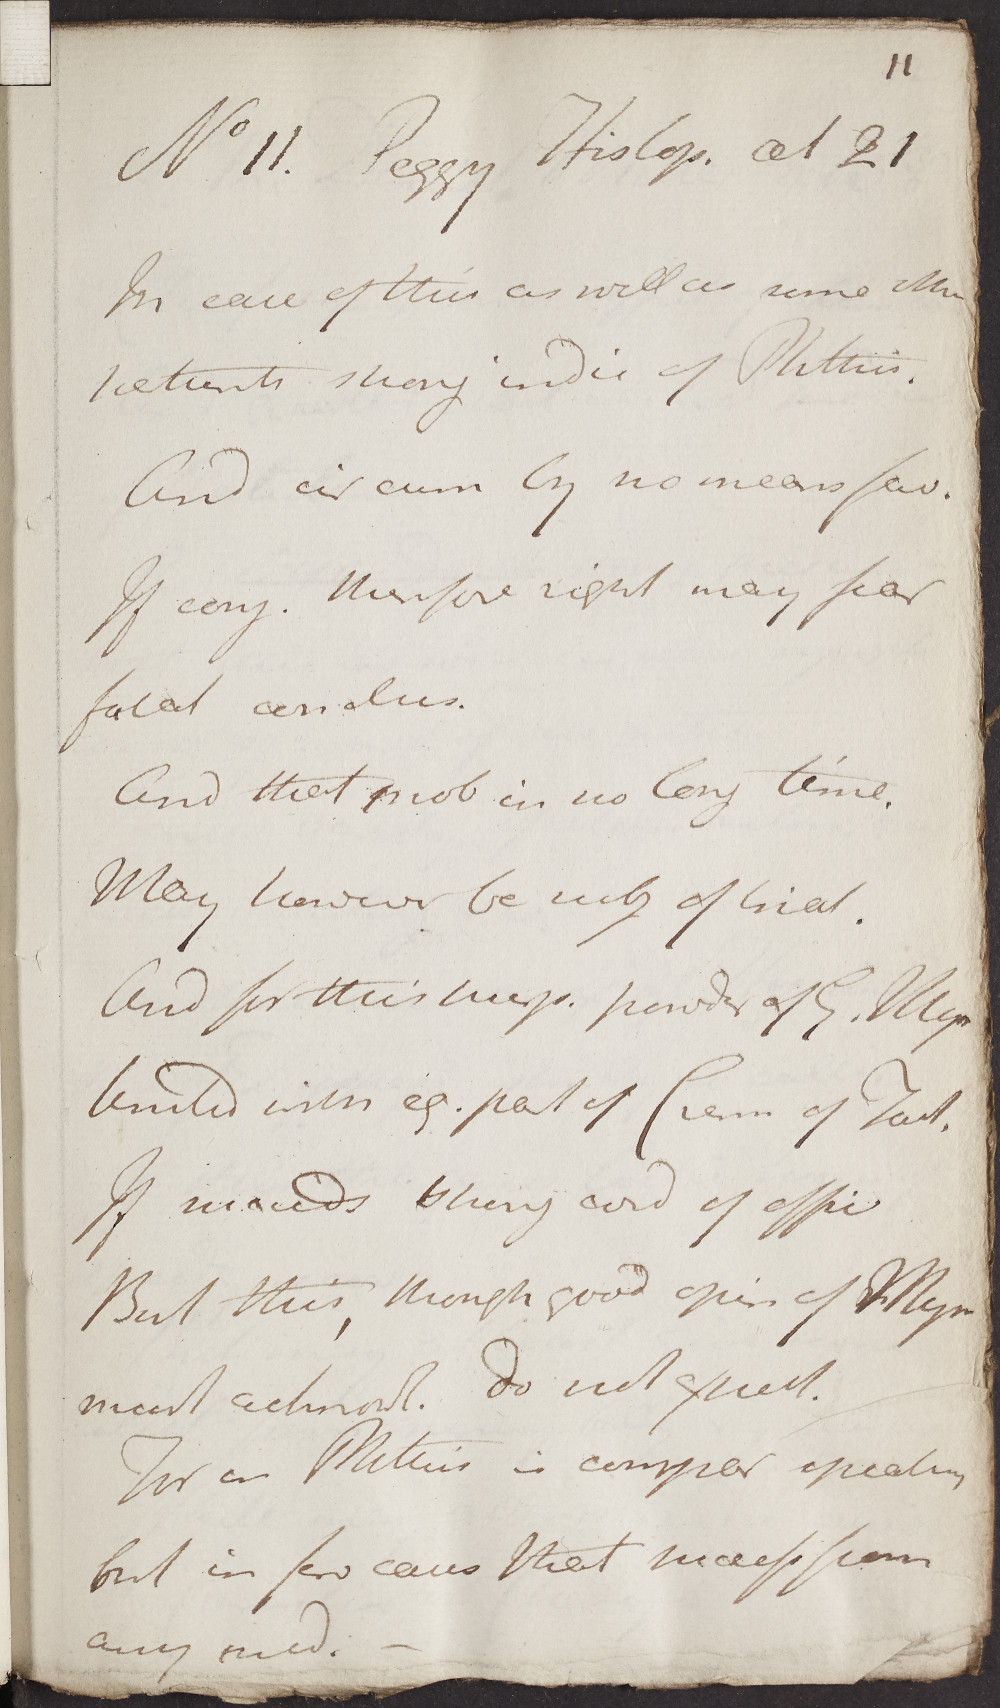 11
No 11. Peggy Hislop. aet 21
In case of this as well as some other
patients strong indic of Phthisis.
And circum by no means fav.
If conj. therefore right may fear
fatal conclus.
And that prob in no long time.
May however be subj of trial.
And for this purp. powder of G. Myr
United with eq. part of Crem of Tart.
If succeds strong cord of effic
But this, though good opin of Myrr
must acknowl. Do not expect.
For in Phthisis is comper speaking
but in few cases that success from
any med. —